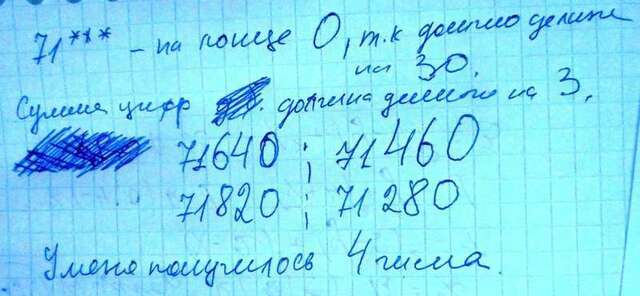 71*** - на конце 0, т.к должно делится
на 30.
Сумма цифр должна делится на 3.
71640 ; 71460
71820 ; 71280
У меня получилось 4 числа.